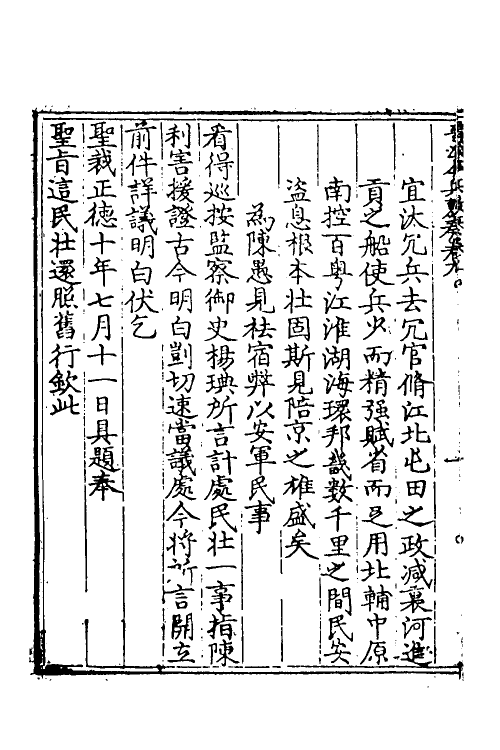 宜汰冗兵去冗官脩江北屯田之政減襄河進
貢之船使兵少而精强賦省而足用北輔中原
南控百粤江淮湖海環邦畿數千里之間民安
盜息根本壯固斯見陪京之雄盛矣
為陳愚見袪宿弊以安軍民事
看得巡按監察御史楊琠所言計處民壯一事指陳
利害援證古今明白剴切速當議處今將所言開立
前件詳議明白伏乞
聖裁正德十年七月十一日具題奉
聖旨這民壯還照舊行欽此